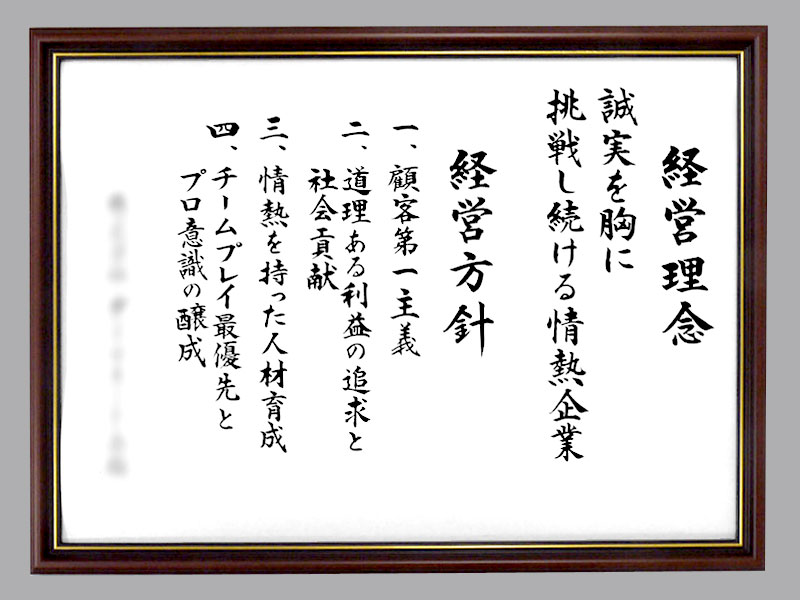 経営理念
誠実を胸に
挑戦し続ける情熱企業
経営方針
一、顧客第一主義
二、道理ある利益の追求と
社会貢献
三、情熱を持った人材育成
四、チームプレイ最優先と
プロ意識の醸成